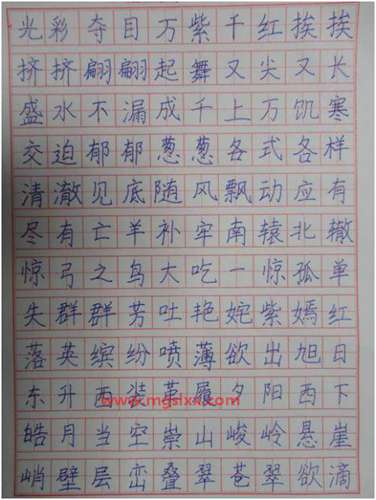 光彩夺目万紫千红挨挨
挤挤翩翩起舞又尖又长
盛水不漏成千上万饥寒
交迫郁郁葱葱各式各样
清澈见底随风飘动应有
尽有亡羊补牢南辕北辙
惊弓之鸟大吃一惊孤单
失群群芳吐艳姹紫嫣红
落英缤纷喷薄欲出旭日
东升西装革履夕阳西下
www.mgslxx.com
皓月当空崇山峻岭悬崖
峭壁层峦叠翠苍翠欲滴